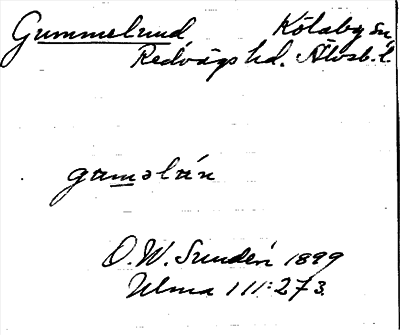 Gummelund Kölaby sn
Redvägs hd. Älvsb. l.
gaməlán
O.W. Sundén 1899
Ulma 111:273.